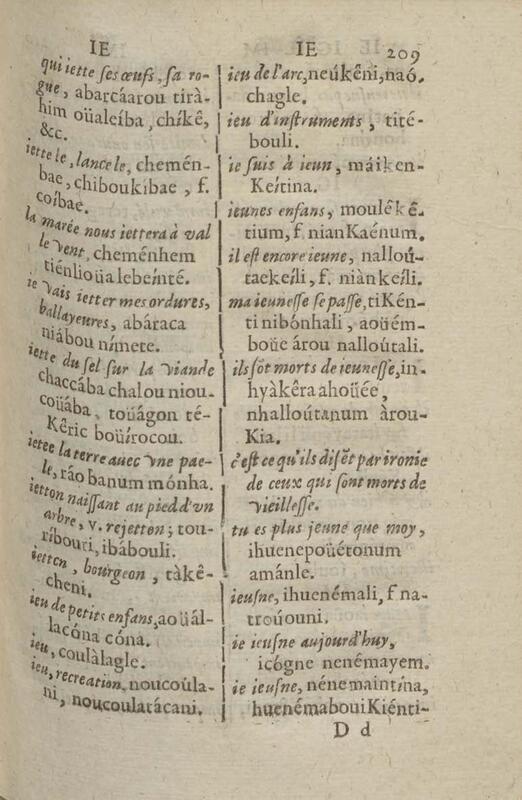 IE
qui iette ses œufs, sa ro-
gue, abarcáarou tirà-
him oüaleíba, chíkê,
&c.
iette le, lance le, chemén-
bae, chiboukíbae, f.
coíbae.
la marée nous iettera à val
le vent, cheménhem
tiénlioüalebeínté.
ie vais ietter mes ordures,
ballayeures, abáraca
niábou nímete.
iette du sel sur la viande
chaccába chalou niou-
coüába, toüágon té-
Kêric boüírocou.
iettee la terre auec vne pae-
le, ráobanum mónha.
ietton naissant au pied d'vn
arbre, v. rejetton; tou-
ribouri, ibábouli.
ietton, bourgeon, tàkê-
cheni.
ieu de petits enfans, aoüál-
lacóna cóna.
ieu, coulàlagle.
ieu, recreation, noucoúla-
ni, noucoulatácani.
IE 209
ieu de l'arc, neúkêni, naó.
chagle.
ieu d'instruments, tité-
bouli.
ie suis à ieun, máiken-
Keítina.
ieunes enfans, moulékê.
tium, f. nianKaénum.
il est encore ieune, nalloú-
taekeíli, f. niànkeíli.
ma ieunesse se passe, tiKén-
ti nibónhali, aoüém-
boüe árou nalloútali.
ils sõt morts de ieunesse, in-
hyàkêra ahoüée,
nhalloútanum àrou-
Kia.
c'est ce qu'ils disẽt par ironie
de ceux qui sont morts de
vieillesse.
tu es plus jeune que moy,
ihuenepoüétonum
amánle.
ieusne, ihuenémali, f na-
troúouni.
ie ieusne aujourd'huy,
icógne nenémayem.
ie ieusne, nénemaintína,
huenémabouiKiénti-
D d